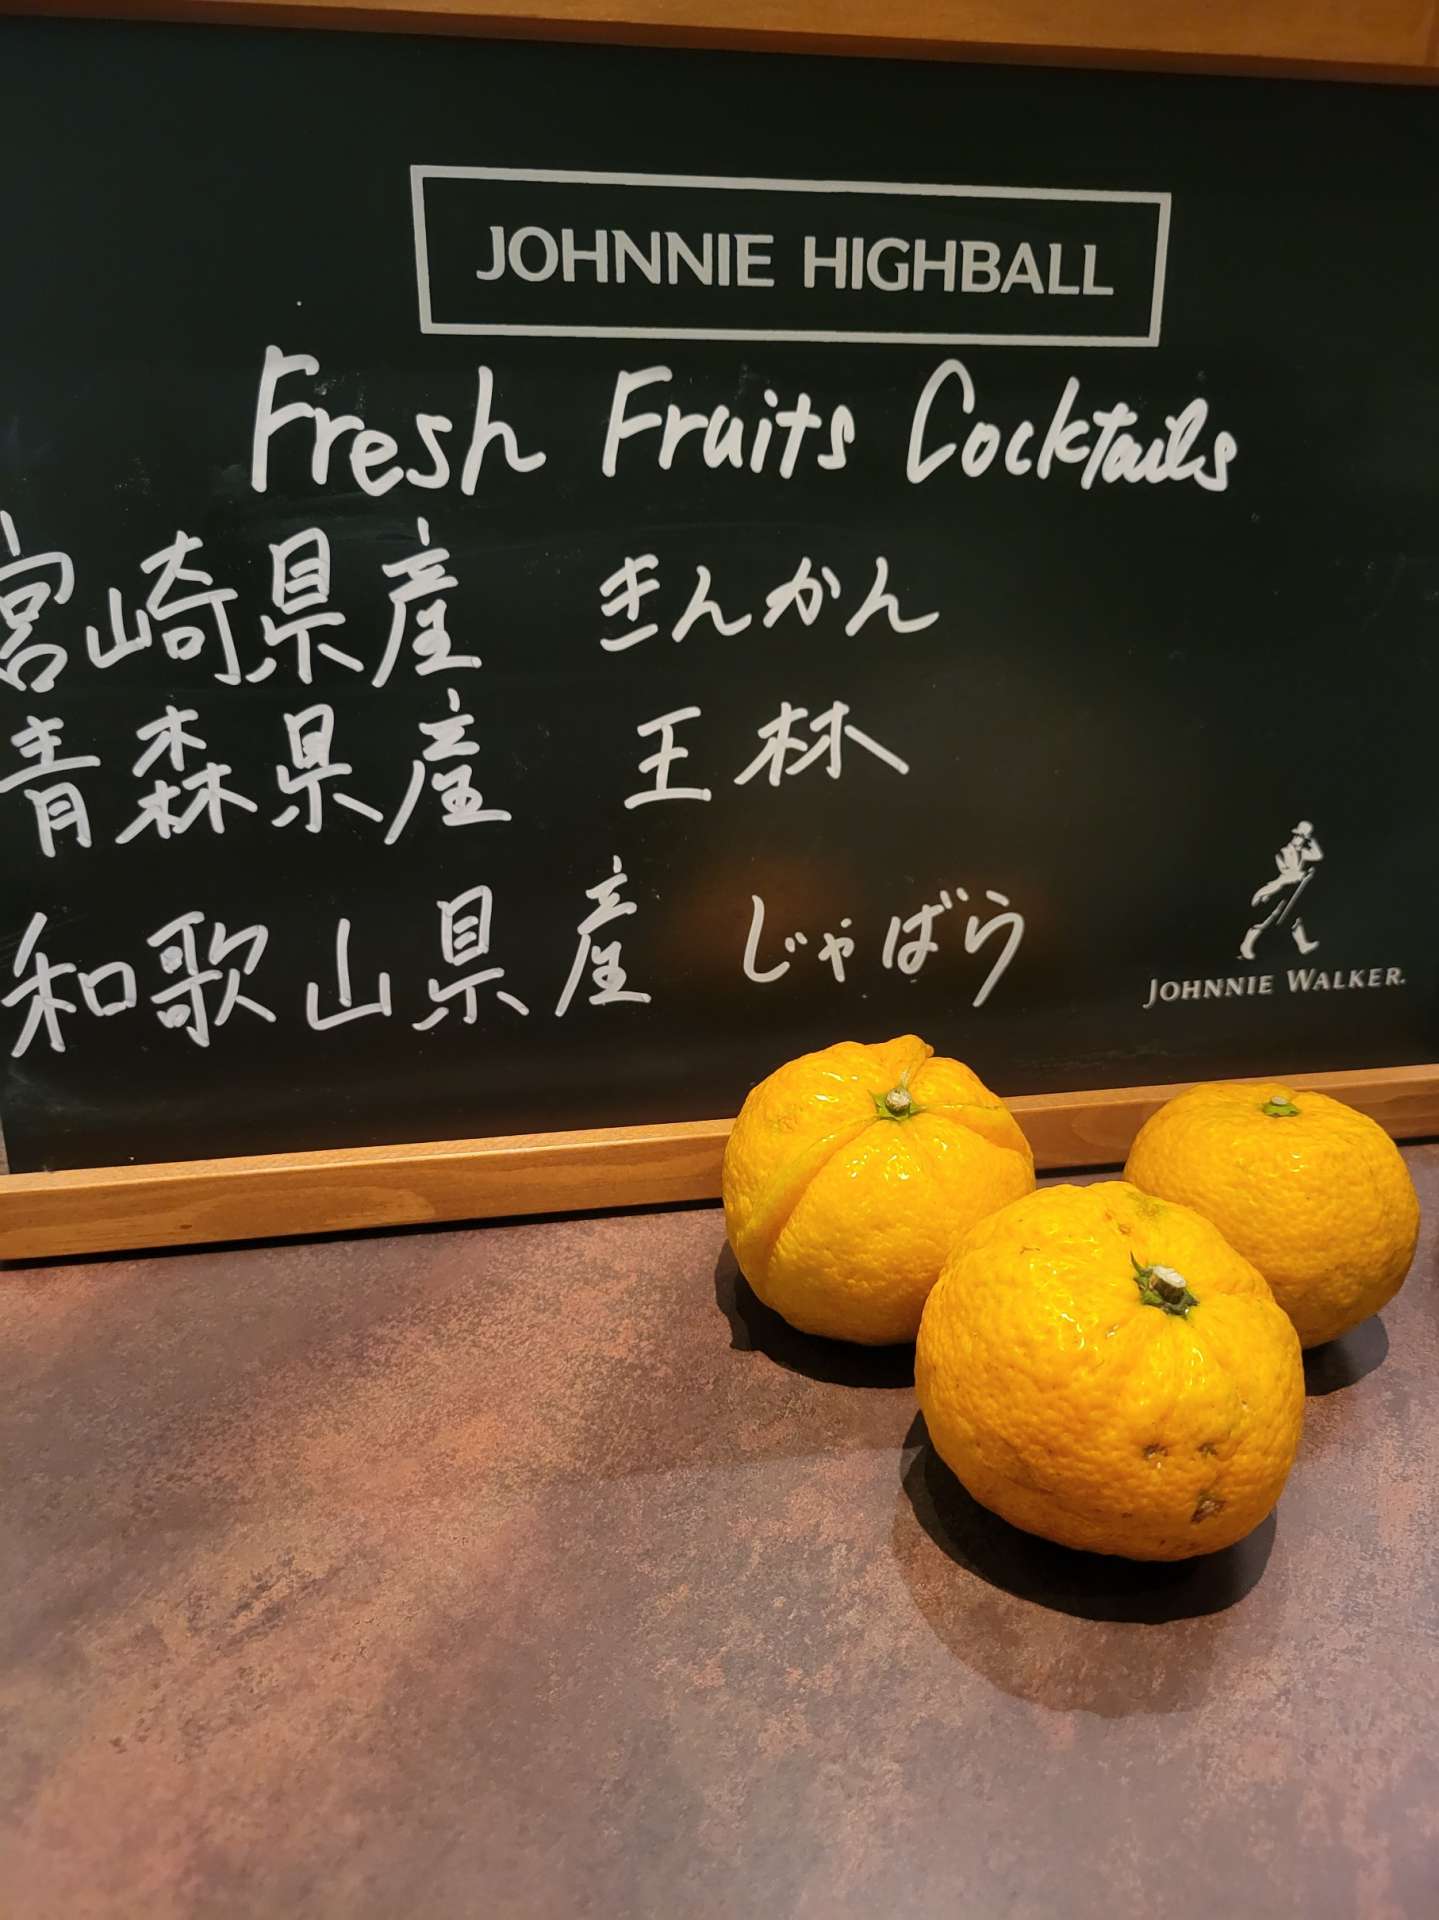 JOHNNIE HIGHBALL
Fresh Fruits Cocktails
宮崎県産 きんかん
青森県産 王林
和歌山県産 じゃばら
JOHNNIE WALKER.